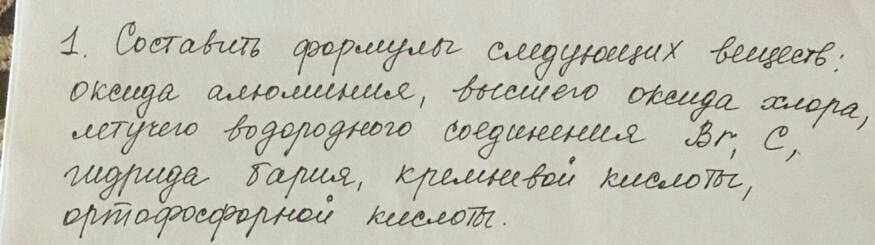 1. Составить формулы следующих веществ:
оксида алюминия, высшего оксида хлора,
летучего водородного соединения Br, C,
гидрида бария, кремневой кислоты,
ортофосфорной кислоты.